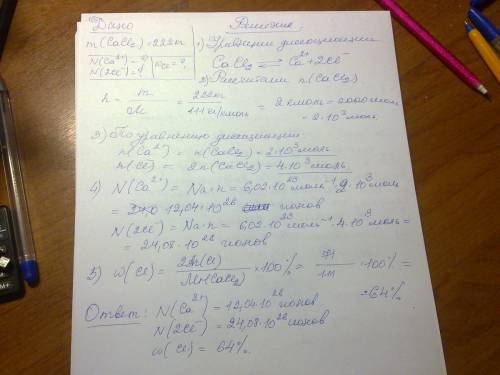 Дано Решение
m(CaCl₂)=222г 1) Уравнение диссоциации
N(Ca²⁺)=? W Cl=?
N(2Cl⁻)=? CaCl₂ ⇄ Ca²⁺+2Cl⁻
2) Рассчитали n(CaCl₂)
n = m/M = 222кг/111 кг/кмоль = 2 кмоль = 2000 моль
= 2·10³ моль
3) По уравнению диссоциации:
n(Ca²⁺) = n(CaCl₂) = 2·10³ моль
n(Cl) = 2n(CaCl₂) = 4·10³ моль
4) N(Ca²⁺) = Na·n = 6,02·10²³ моль⁻¹·2·10³ моль
= 12,04·10²⁶ ионов
N(2Cl⁻) = Na·n = 6,02·10²³ моль⁻¹·4·10³ моль =
= 24,08·10²⁶ ионов
5) w(Cl) = 2Ar(Cl)/Mr(CaCl₂) ×100% = 71/111 ·100% =
=64%
Ответ: N(Ca²⁺) = 12,04·10²⁶ ионов
N(2Cl⁻) = 24,08·10²⁶ ионов
w(Cl) = 64%.